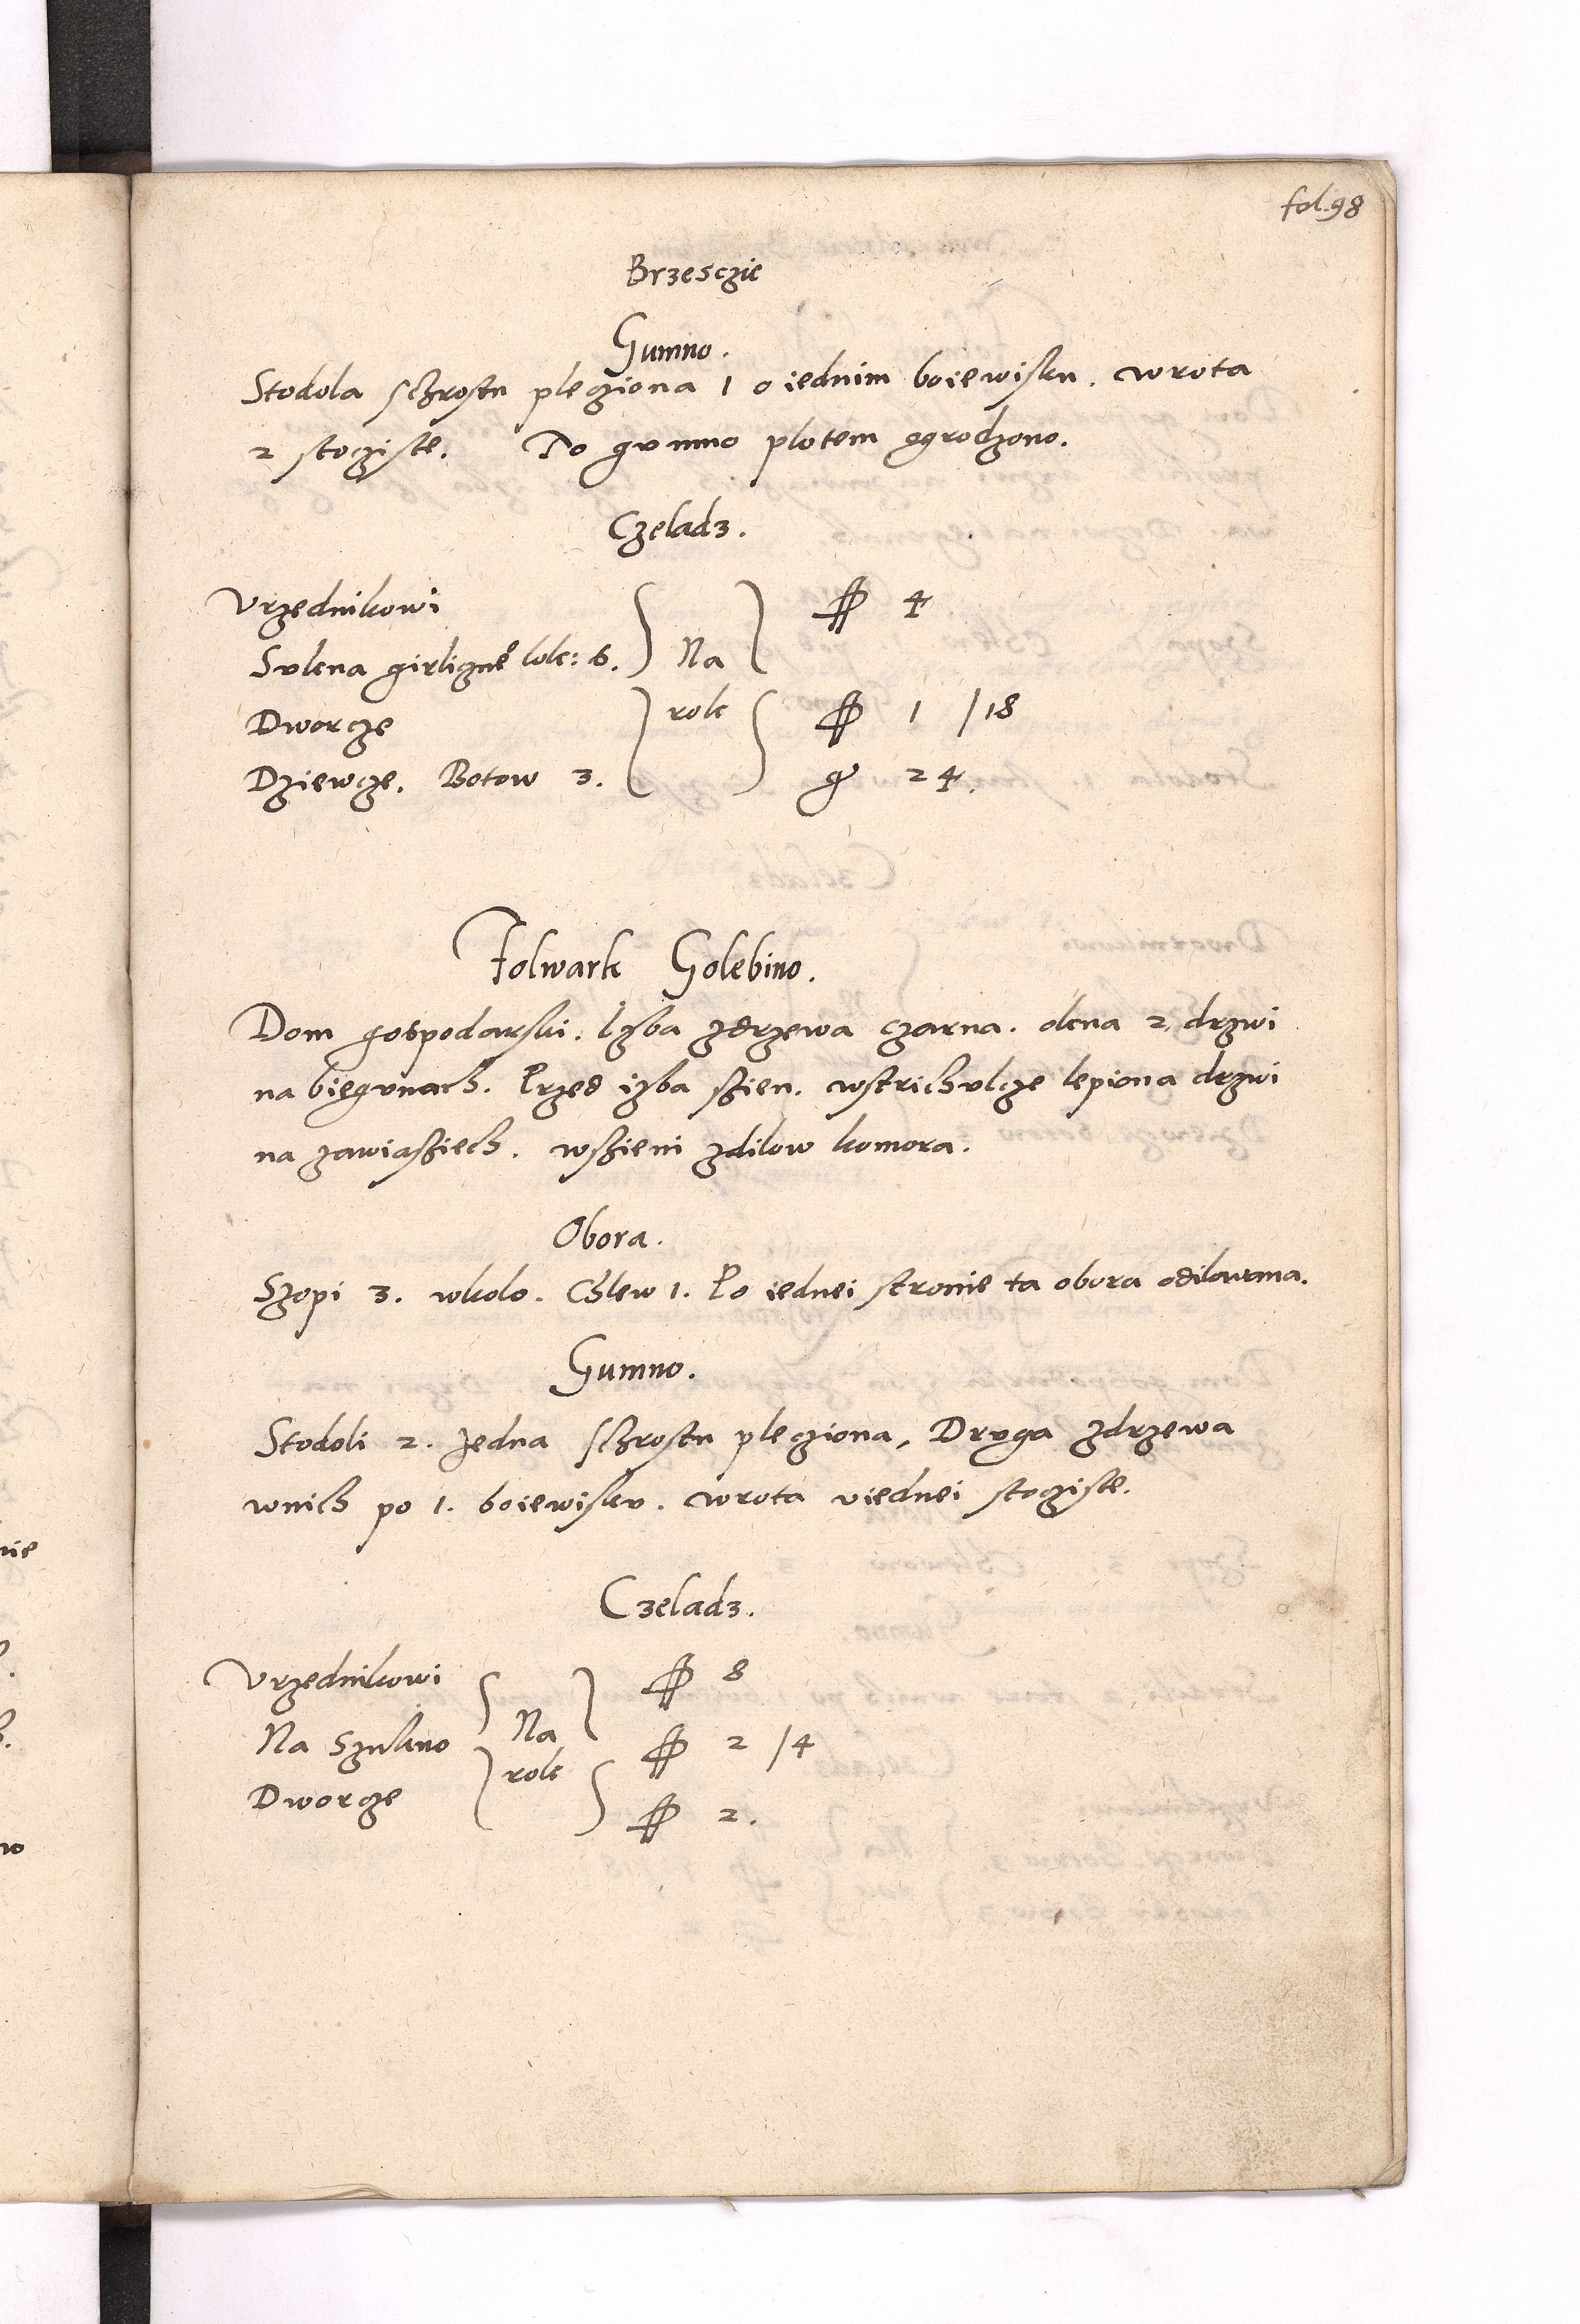 fol. 98
Brzesczie
Gumno.
Stodola schrostu plecziona 1 o iednim boiewisku. wrota
2 stoziste. To gumno plotem ogrodzono.
Czeladz.
Vrzednikowi
Na
fl 4
Sukna girliczne lok: 6.
Dworcze
role
fl 1 / 18
Dziewcze. Botow 3.
gr 24.
Folwark Golebino.
Dom gospodarski. Izba zdrzewa czarna. okna 2, drzwi
na biegunach. Przed izba szien. wstrichulcze lepiona drzwi
na zawiasziech. wszieni zdilow komora.
Obora.
Szopi 3. wkolo. Chlew 1. Po iednei stronie ta obora odilowana.
Gumno.
Stodoli 2. Jedna schrostu plecziona, Druga zdrzewa
wnich po 1. boiewisku. wrota uiednei stoziste.
Czeladz.
Vrzednikowi
Na
fl 8
Na Szukno
role
fl 2 / 4
Dworcze
fl 2.